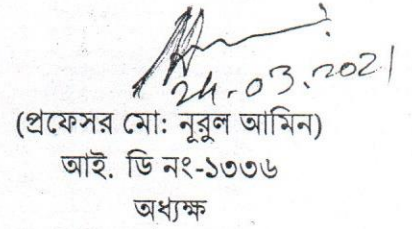 24.03.2021
(প্রফেসর মো: নূরুল আমিন)
আই. ডি নং-১৩৩৬
অধ্যক্ষ